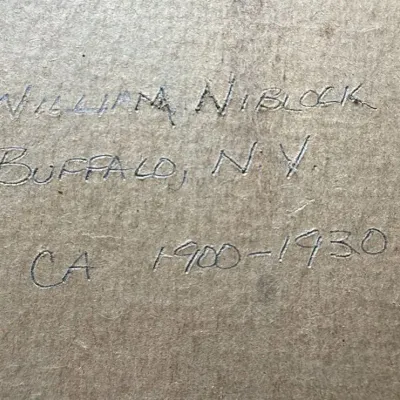 WILLIAM NIBLOCK
BUFFALO, N.Y.
CA 1900-1930